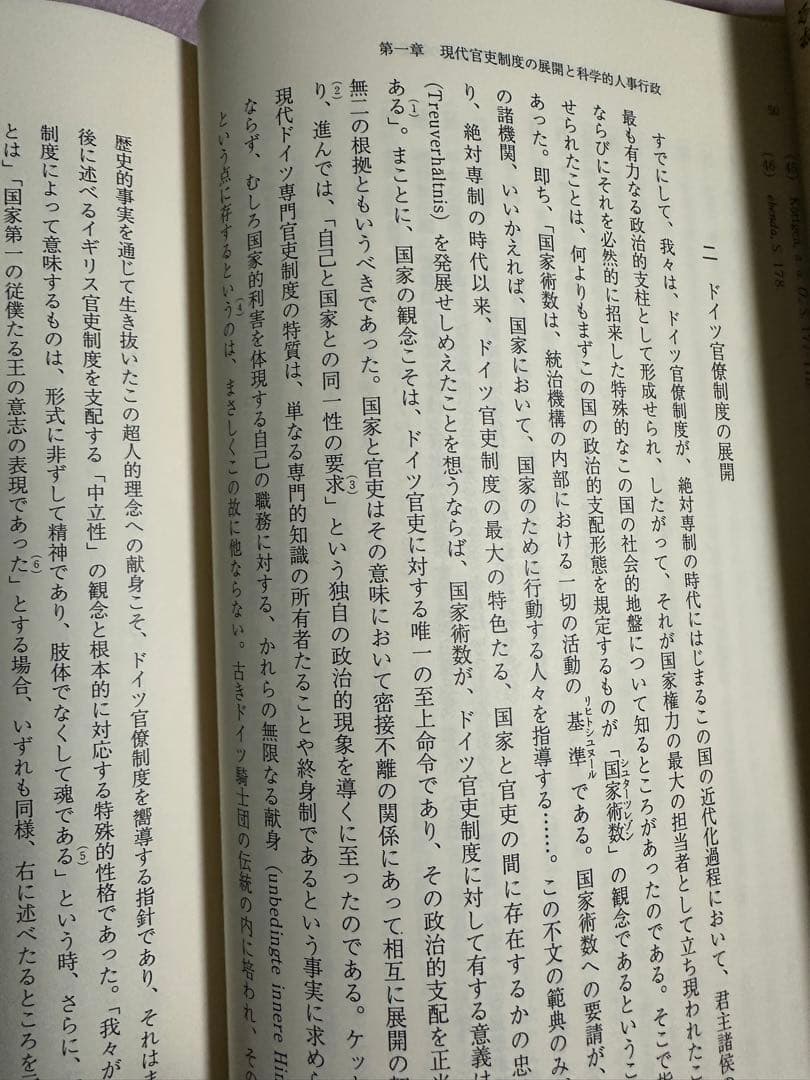 第一章 現代官吏制度の展開と科学的人事行政
二 ドイツ官僚制度の展開
すでにして、我々は、ドイツ官僚制度が、絶対専制の時代にはじまるこの国の近代化過程において、君主諸侯
最も有力なる政治的支柱として形成せられ、したがって、それが国家権力の最大の担当者として立ち現われたこ
ならびにそれを必然的に招来した特殊的なこの国の社会的地盤について知るところがあったのである。そこで
せられたことは、何よりもまずこの国の政治的支配形態を規定するものが「国家術数」の観念であるというこ
シュターツレゾン
あった。即ち、「国家術数は、統治機構の内部における一切の活動の基準である。国家術数への要請が、
リヒトシュヌール
の諸機関、いいかえれば、国家において、国家のために行動する人々を指導する……。この不文の範典のみ
り、絶対専制の時代以来、ドイツ官吏制度の最大の特色たる、国家と官吏の間に存在するかの忠
(Treuverhaltnis) を発展せしめえたことを想うならば、国家術数が、ドイツ官吏制度に対して有する意義は
ある」。まことに、国家の観念こそは、ドイツ官吏に対する唯一の至上命令であり、その政治的支配を正当
(1)
無二の根拠ともいうべきであった。国家と官吏はその意味において密接不離の関係にあって相互に展開の
り、進んでは、「自己と国家との同一性の要求」という独自の政治的現象を導くに至ったのである。ケッ
(2) (3)
現代ドイツ専門官吏制度の特質は、単なる専門的知識の所有者たることや終身制であるという事実に求め
ならず、むしろ国家的利害を体現する自己の職務に対する、かれらの無限なる献身 (unbedingte innere Hin
という点に存するというのは、まさしくこの故に他ならない。古きドイツ騎士団の伝統の内に培われ、その
(4)
歴史的事実を通じて生き抜いたこの超人的理念への献身こそ、ドイツ官僚制度を嚮導する指針であり、それは
後に述べるイギリス官吏制度を支配する「中立性」の観念と根本的に対応する特殊的性格であった。「我々が
制度によって意味するものは、形式に非ずして精神であり、肢体でなくして魂である」という時、さらに、
(5)
とは」「国家第一の従僕たる王の意志の表現であった」とする場合、いずれも同様、右に述べたるところを
(6)
50
(46) ebenda, S. 178